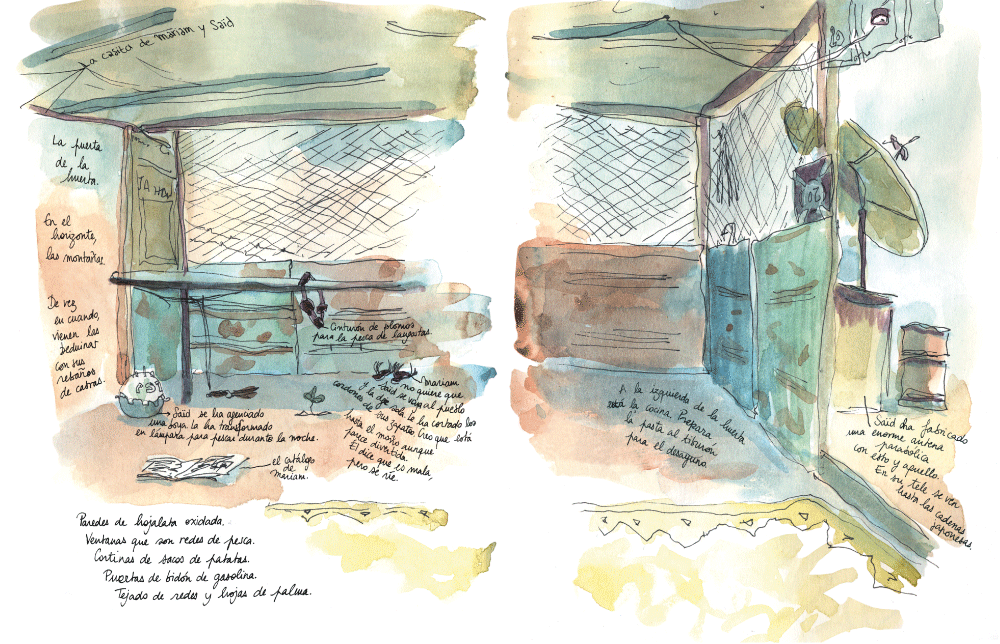 La casita de Mariam y Saïd
La puerta
de la
huerta.
En el
horizonte,
las montañas.
De vez
en cuando,
vienen las
beduinas
con sus
rebaños
de cabras.
Cinturón de plomos
para la pesca de langostas.
Mariam
no quiere que
y Saïd se vaya al pueblo
la deje sola. Le ha cortado los
cordones de sus zapatos. Creo que está
hasta el moño aunque
parece divertida.
Él dice que es mala,
pero se ríe.
Saïd se ha agenciado
una boya. La ha transformado
en lámpara para pescar durante la noche.
el catálogo
de
Mariam.
Paredes de hojalata oxidada.
Ventanas que son redes de pesca.
Cortinas de sacos de patatas.
Puertas de bidón de gasolina.
Tejado de redes y hojas de palma.
20
A la izquierda de la huerta
está la cocina. Prepara
la pasta al tiburón
para el desayuno.
Saïd ha fabricado
una enorme antena
parabólica
con esto y aquello.
En su tele se ven
hasta las cadenas
japonesas.